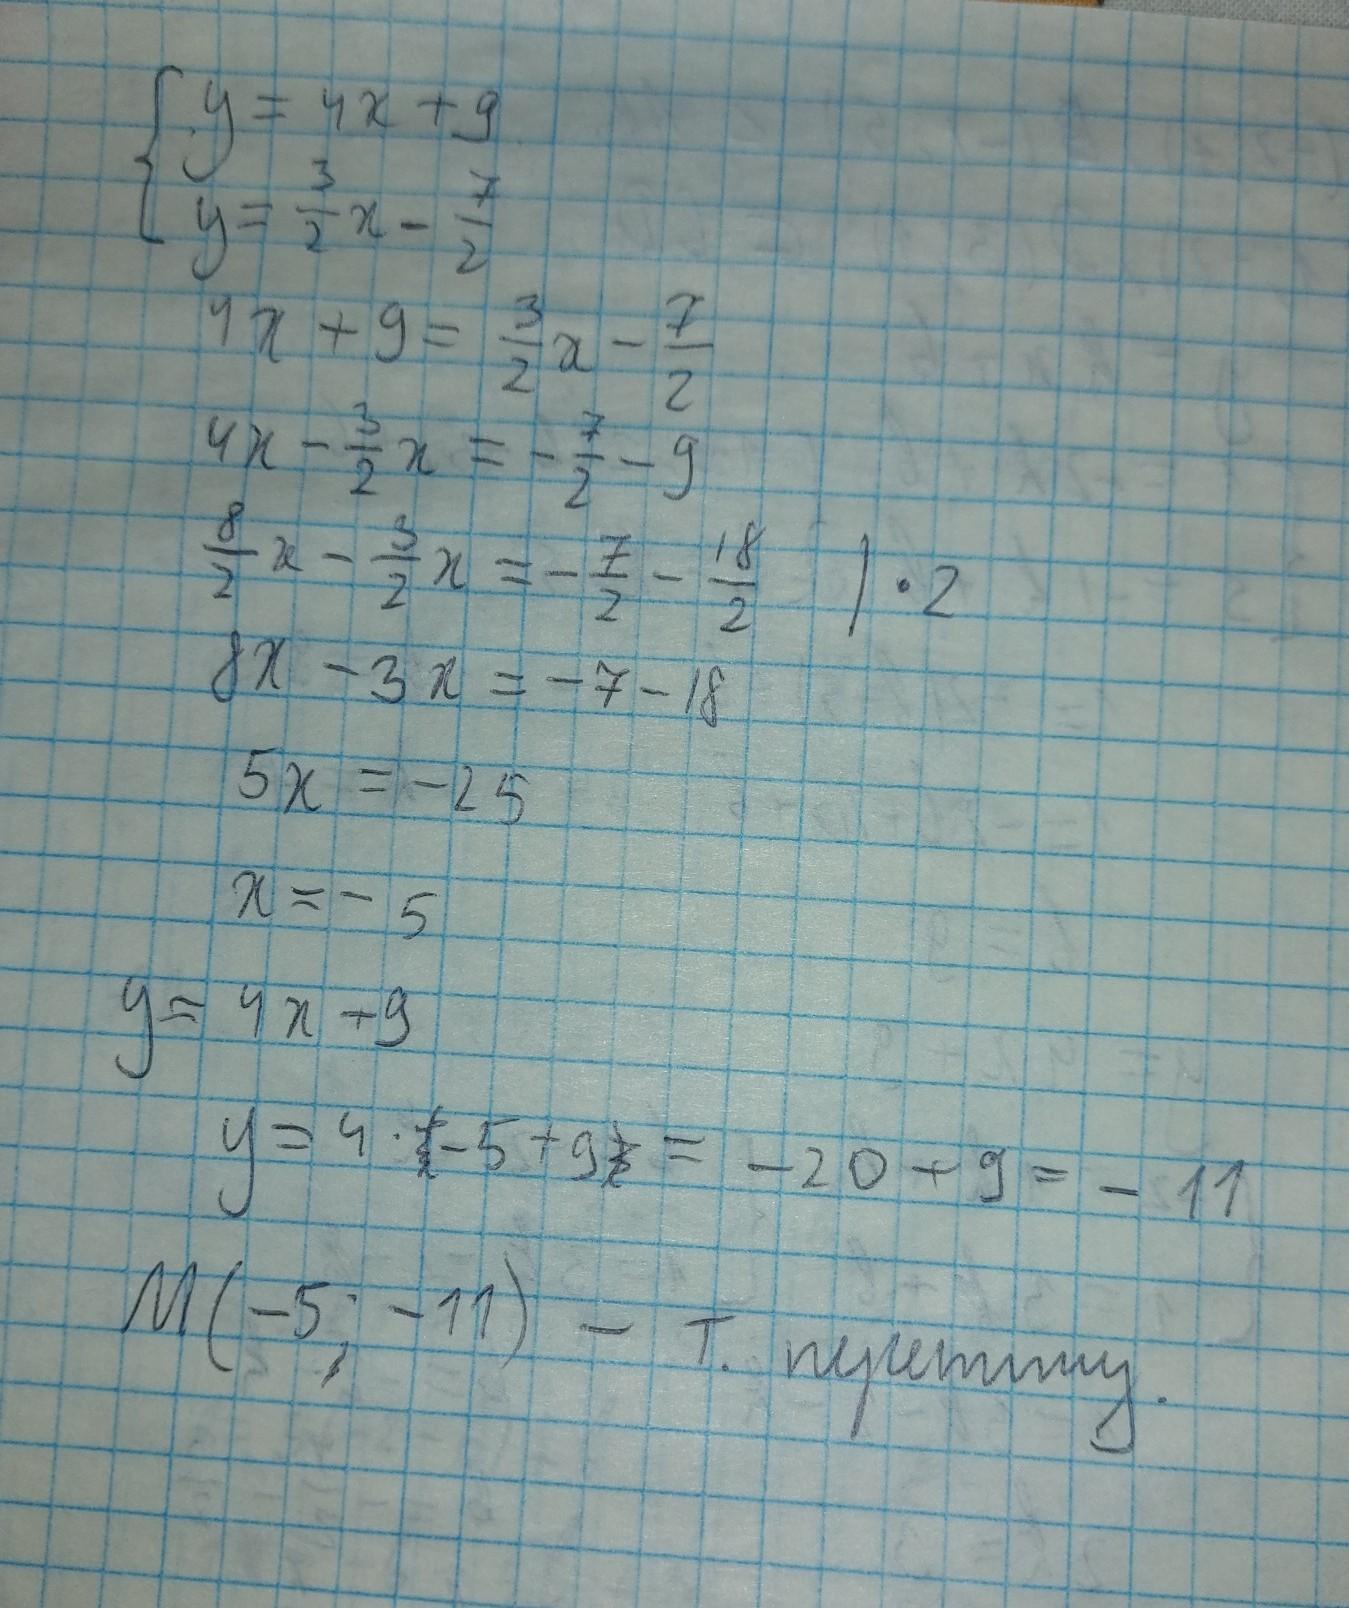 { y = 4x + 9
y = 3/2 x - 7/2
4x + 9 = 3/2 x - 7/2
4x - 3/2 x = - 7/2 - 9
8/2 x - 3/2 x = - 7/2 - 18/2 | · 2
8x - 3x = -7 - 18
5x = -25
x = -5
y = 4x + 9
y = 4 · -5 + 9 = -20 + 9 = -11
M(-5; -11) - т. перетину.